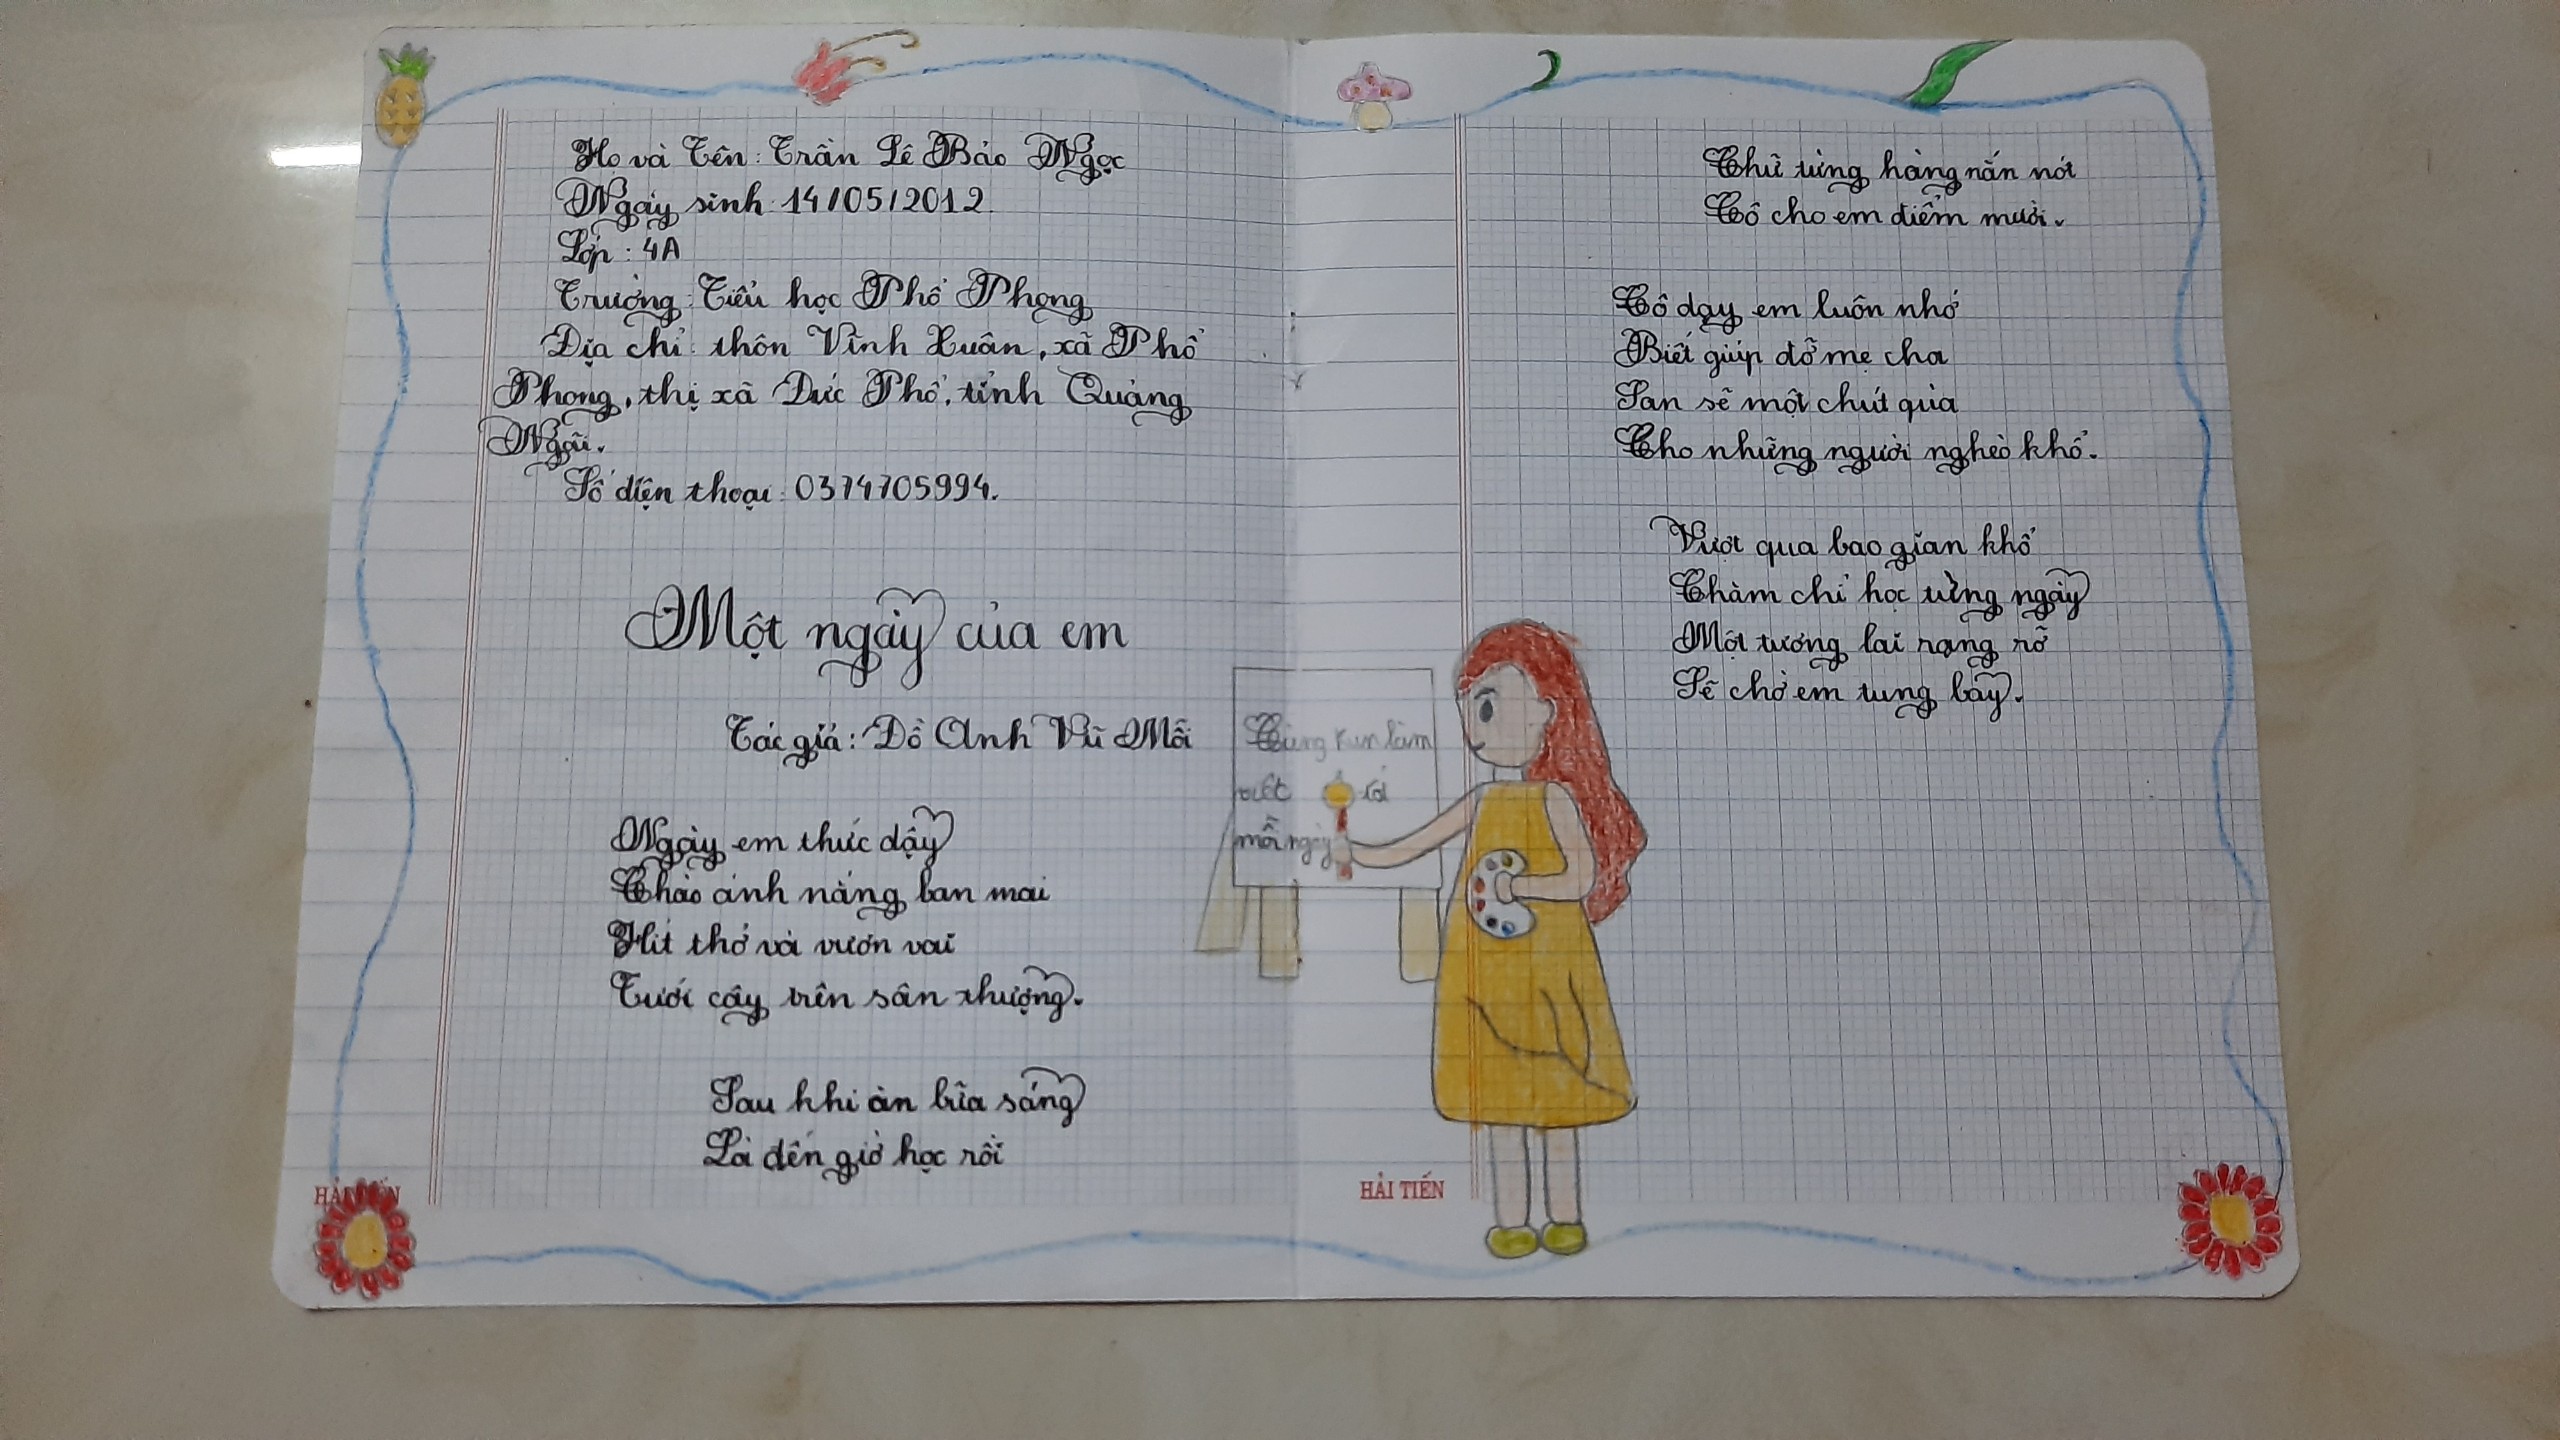 Họ và Tên: Trần Lê Bảo Ngọc
Ngày sinh: 14/05/2012.
Lớp: 4A
Trường: Tiểu học Phổ Phong
Địa chỉ: thôn Vĩnh Xuân, xã Phổ
Phong, thị xã Đức Phổ, tỉnh Quảng
Ngãi.
Số điện thoại: 0374705994.
Một ngày của em
Tác giả: Đỗ Anh Vũ
Ngày em thức dậy
Chào ánh nắng ban mai
Hít thở và vươn vai
Tưới cây trên sân thượng.
Sau khi ăn bữa sáng
Là đến giờ học rồi
HẢI TIẾN
Cùng Kun làm
việt
mỗi ngày
HẢI TIẾN
Chữ từng hàng nắn nót
Cô cho em điểm mười.
Cô dạy em luôn nhớ
Biết giúp đỡ mẹ cha
San sẽ một chút quà
Cho những người nghèo khổ.
Vượt qua bao gian khổ
Chăm chỉ học từng ngày
Một tương lai rạng rỡ
Sẽ chờ em tung bay.